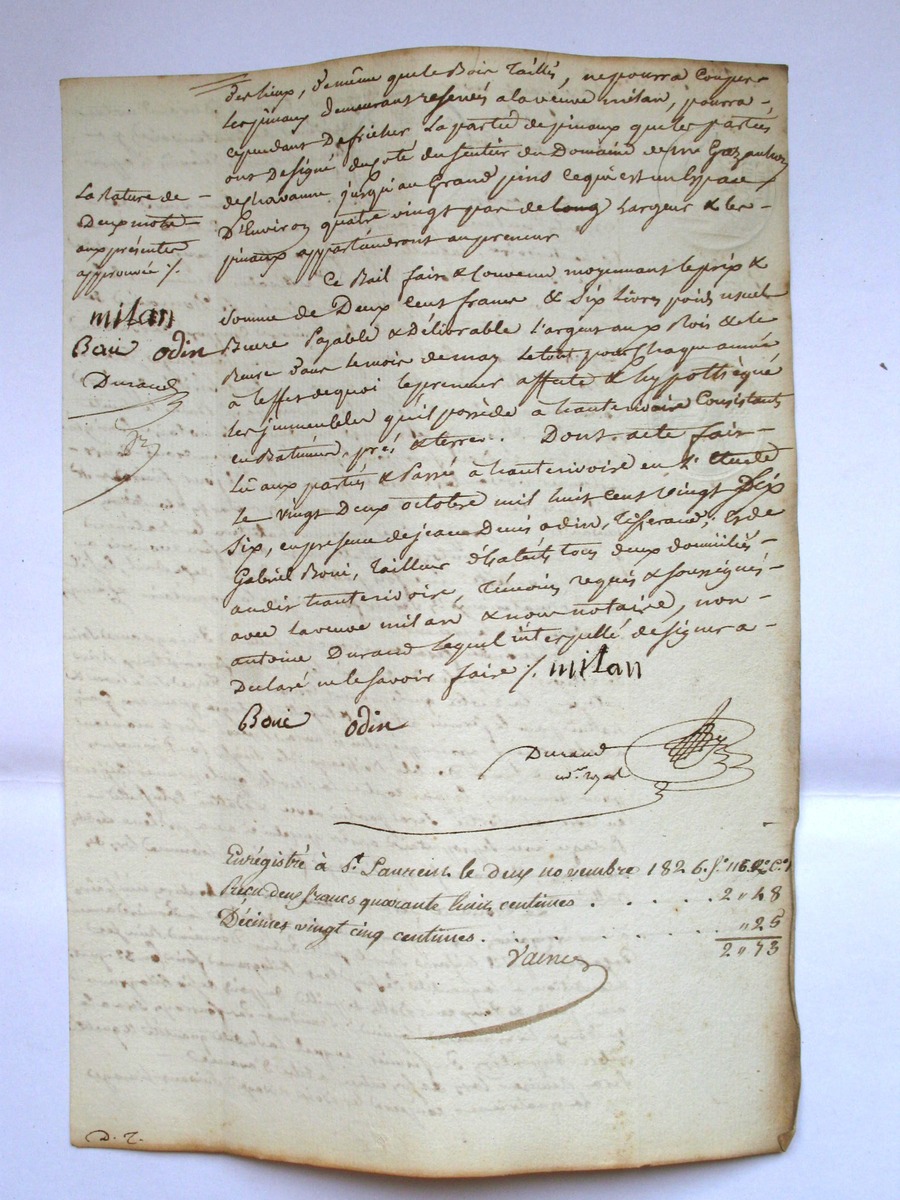 des lieux, de même que le Bois Taillis, ne pourra Couper
les pinaux demeurant reservés a la veuve milan, pourra
cependant Defricher La partie de pinaux que les parties
ont Designé du coté du sentier du Domaine de Mr
de jusqu'au Grand pins ce qui est un Espace
D'Environ quatre vingts pas de long Largeur & les
pinaux appartiendront au preneur
La Rature de
Deux mots
aux présentes
approuvée ./.
milan
Boué odin
Durand
Ce Bail fait & Convenu moyennant le prix &
somme de Deux Cent francs & Six Livres poids usuel
Beure Payable & Délivrable L'argent aux Rois & le
Beure dans le mois de may Le tout pour Chaque année
à l'effet de quoi le preneur affecte & hypothèqué
les jmmeubles qu'il possède à hauterivoire Consistants
en Batiment, prés & terres. Dont acte fait
Lû aux parties & Passé à hauterivoire en L'Etude
le vingt Deux octobre mil huit Cent vingt Dix
Six, en presence de jean Denis odin, Tisserand, & de
Gabriel Boui, Tailleur d'habits tous deux domiciliés
audit hauterivoire, Témoins requis & soussignés
avec La veuve milan & nous notaire, non
antoine Durand Lequel interpellé de signer a
Declaré ne le savoir faire ./. milan
Boué odin
Durand
nre. royal
Enrégistré à St. Laurent le deux novembre 1826. fo. 116. Ro. C.
Reçu deux francs quarante huit centimes . . . . . . 2 " 48
Décimes vingt cinq centimes . . . . . . " 25
2 " 73
D. T.